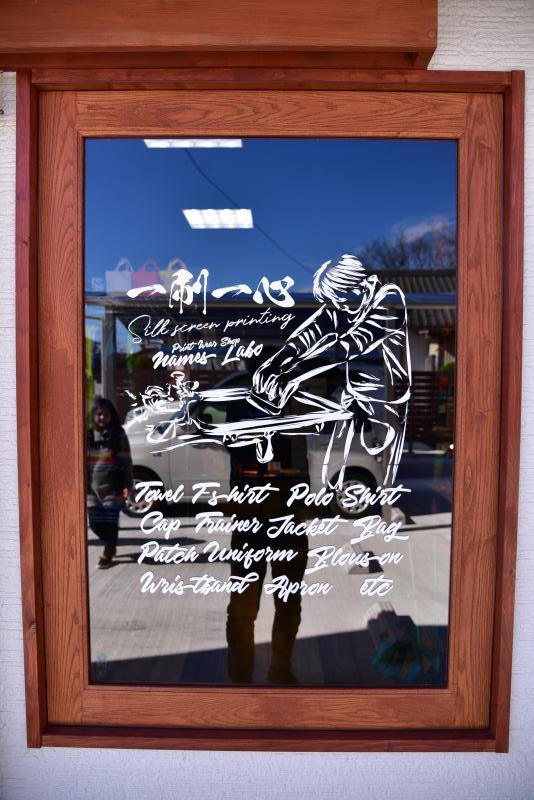 一刷一心
Silk screen printing
Print Wear Shop
names Labo
Towel T-shirt Polo Shirt
Cap Trainer Jacket Bag
Patch Uniform Blous-on
Wris-tband Apron etc